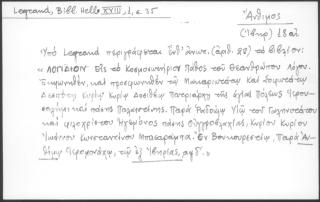 Legrand, Bibl. Hellé XVIII, 1, σ 35
Ἄνθιμος
(Ἰβηρ) 18 αἰ
Ὑπὸ Legrand περιγράφεται ἔνθ' ἀνωτ. (ἀριθ. 28) τὸ βιβλίον:
«ΛΟΓΙΔΙΟΝ εἰς τὸ Κοσμοσωτήριον Πάθος τοῦ Θεανθρώπου Λόγου.
καὶ προσφωνηθὲν τῷ Μακαριωτάτῳ καὶ
Δεσπότῃ Κυρίῳ Κυρίῳ Δοσιθέῳ Πατριάρχῃ τῆς ἁγίας Πόλεως Ἱερου-
σαλὴμ καὶ πάσης Παλαιστίνης. Παρὰ Ῥαδούλῳ Υἱῷ τοῦ Γαληνοτάτου
καὶ φιλοχρίστου Ἡγεμόνος πάσης Οὐγγροβλαχίας, Κυρίου Κυρίου
Ἰωάννου Κωνσταντίνου Μπασαράμπα. Ἐν Βουκουρεστίῳ, Παρὰ Ἀν-
θίμῳ Ἱερομονάχῳ, τῷ ἐξ Ἰβηρίας, αψδʹ.»